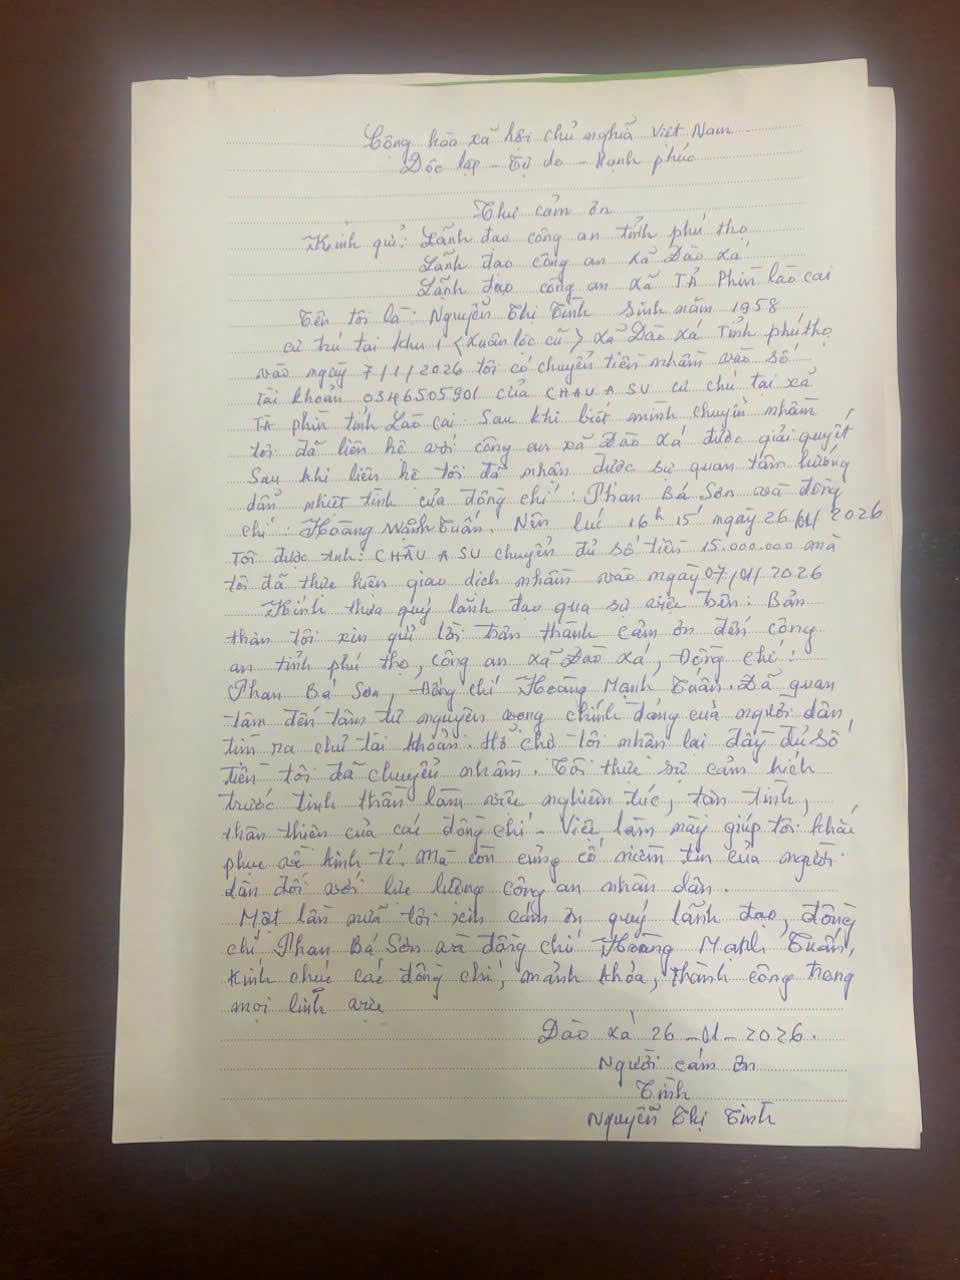 Cộng hòa xã hội chủ nghĩa Việt Nam
Độc lập - Tự do - Hạnh phúc
Thư cảm ơn
Kính gửi: Lãnh đạo công an tỉnh phú thọ
Lãnh đạo công an xã Đào xá
Lãnh đạo công an xã TẢ Phìn lào cai
Tên tôi là: Nguyễn Thị Tình Sinh năm 1958
cư trú tại khu 1 <Xuân lộc cũ> xã Đào xá Tỉnh phú thọ
vào ngày 7/1/2026 tôi có chuyển tiền nhầm vào số
Tài khoản 0346505901 của CHAU A SU cư chú tại xã
TẢ phìn tỉnh Lào cai. Sau khi biết mình chuyển nhầm
tôi đã liên hệ với công an xã Đào Xá được giải quyết
Sau khi liên hệ tôi đã nhận được sự quan tâm hướng
dẫn nhiệt tình của đồng chí: Phan Bá Sơn và đồng
chí: Hoàng Mạnh Tuấn. Nên lúc 16h 15' ngày 26/01/2026
Tôi được Anh: CHÂU A SU chuyển đủ số tiền 15.000.000 mà
tôi đã thực hiện giao dịch nhầm vào ngày 07/01/2026
Kính thưa quý lãnh đạo qua sự việc trên: Bản
thân tôi xin gửi lời trân thành cảm ơn đến công
an tỉnh phú thọ, công an xã Đào xá, Đồng chí:
Phan Bá Sơn, Đồng chí Hoàng Mạnh Tuấn. Đã quan
tâm đến tâm tư nguyện vọng chính đáng của người dân,
tìm ra chủ tài khoản. Hỗ chợ tôi nhận lại đầy đủ số
tiền tôi đã chuyển nhầm. Tôi thực sự cảm kích
trước tinh thần làm việc nghiêm túc, tận tình,
thân thiện của các đồng chí - Việc làm này giúp tôi khắc
phục về kinh tế. Mà còn củng cố niềm tin của người
dân đối với lực lượng công an nhân dân.
Một lần nữa tôi xin cảm ơn quý lãnh đạo, đồng
chí Phan Bá Sơn và đồng chí Hoàng Mạnh Tuấn,
Kính chúc các đồng chí, mạnh khỏa, thành công trong
mọi lĩnh vực
Đào xá 26-01-2026.
Người cảm ơn
Tình
Nguyễn Thị Tình